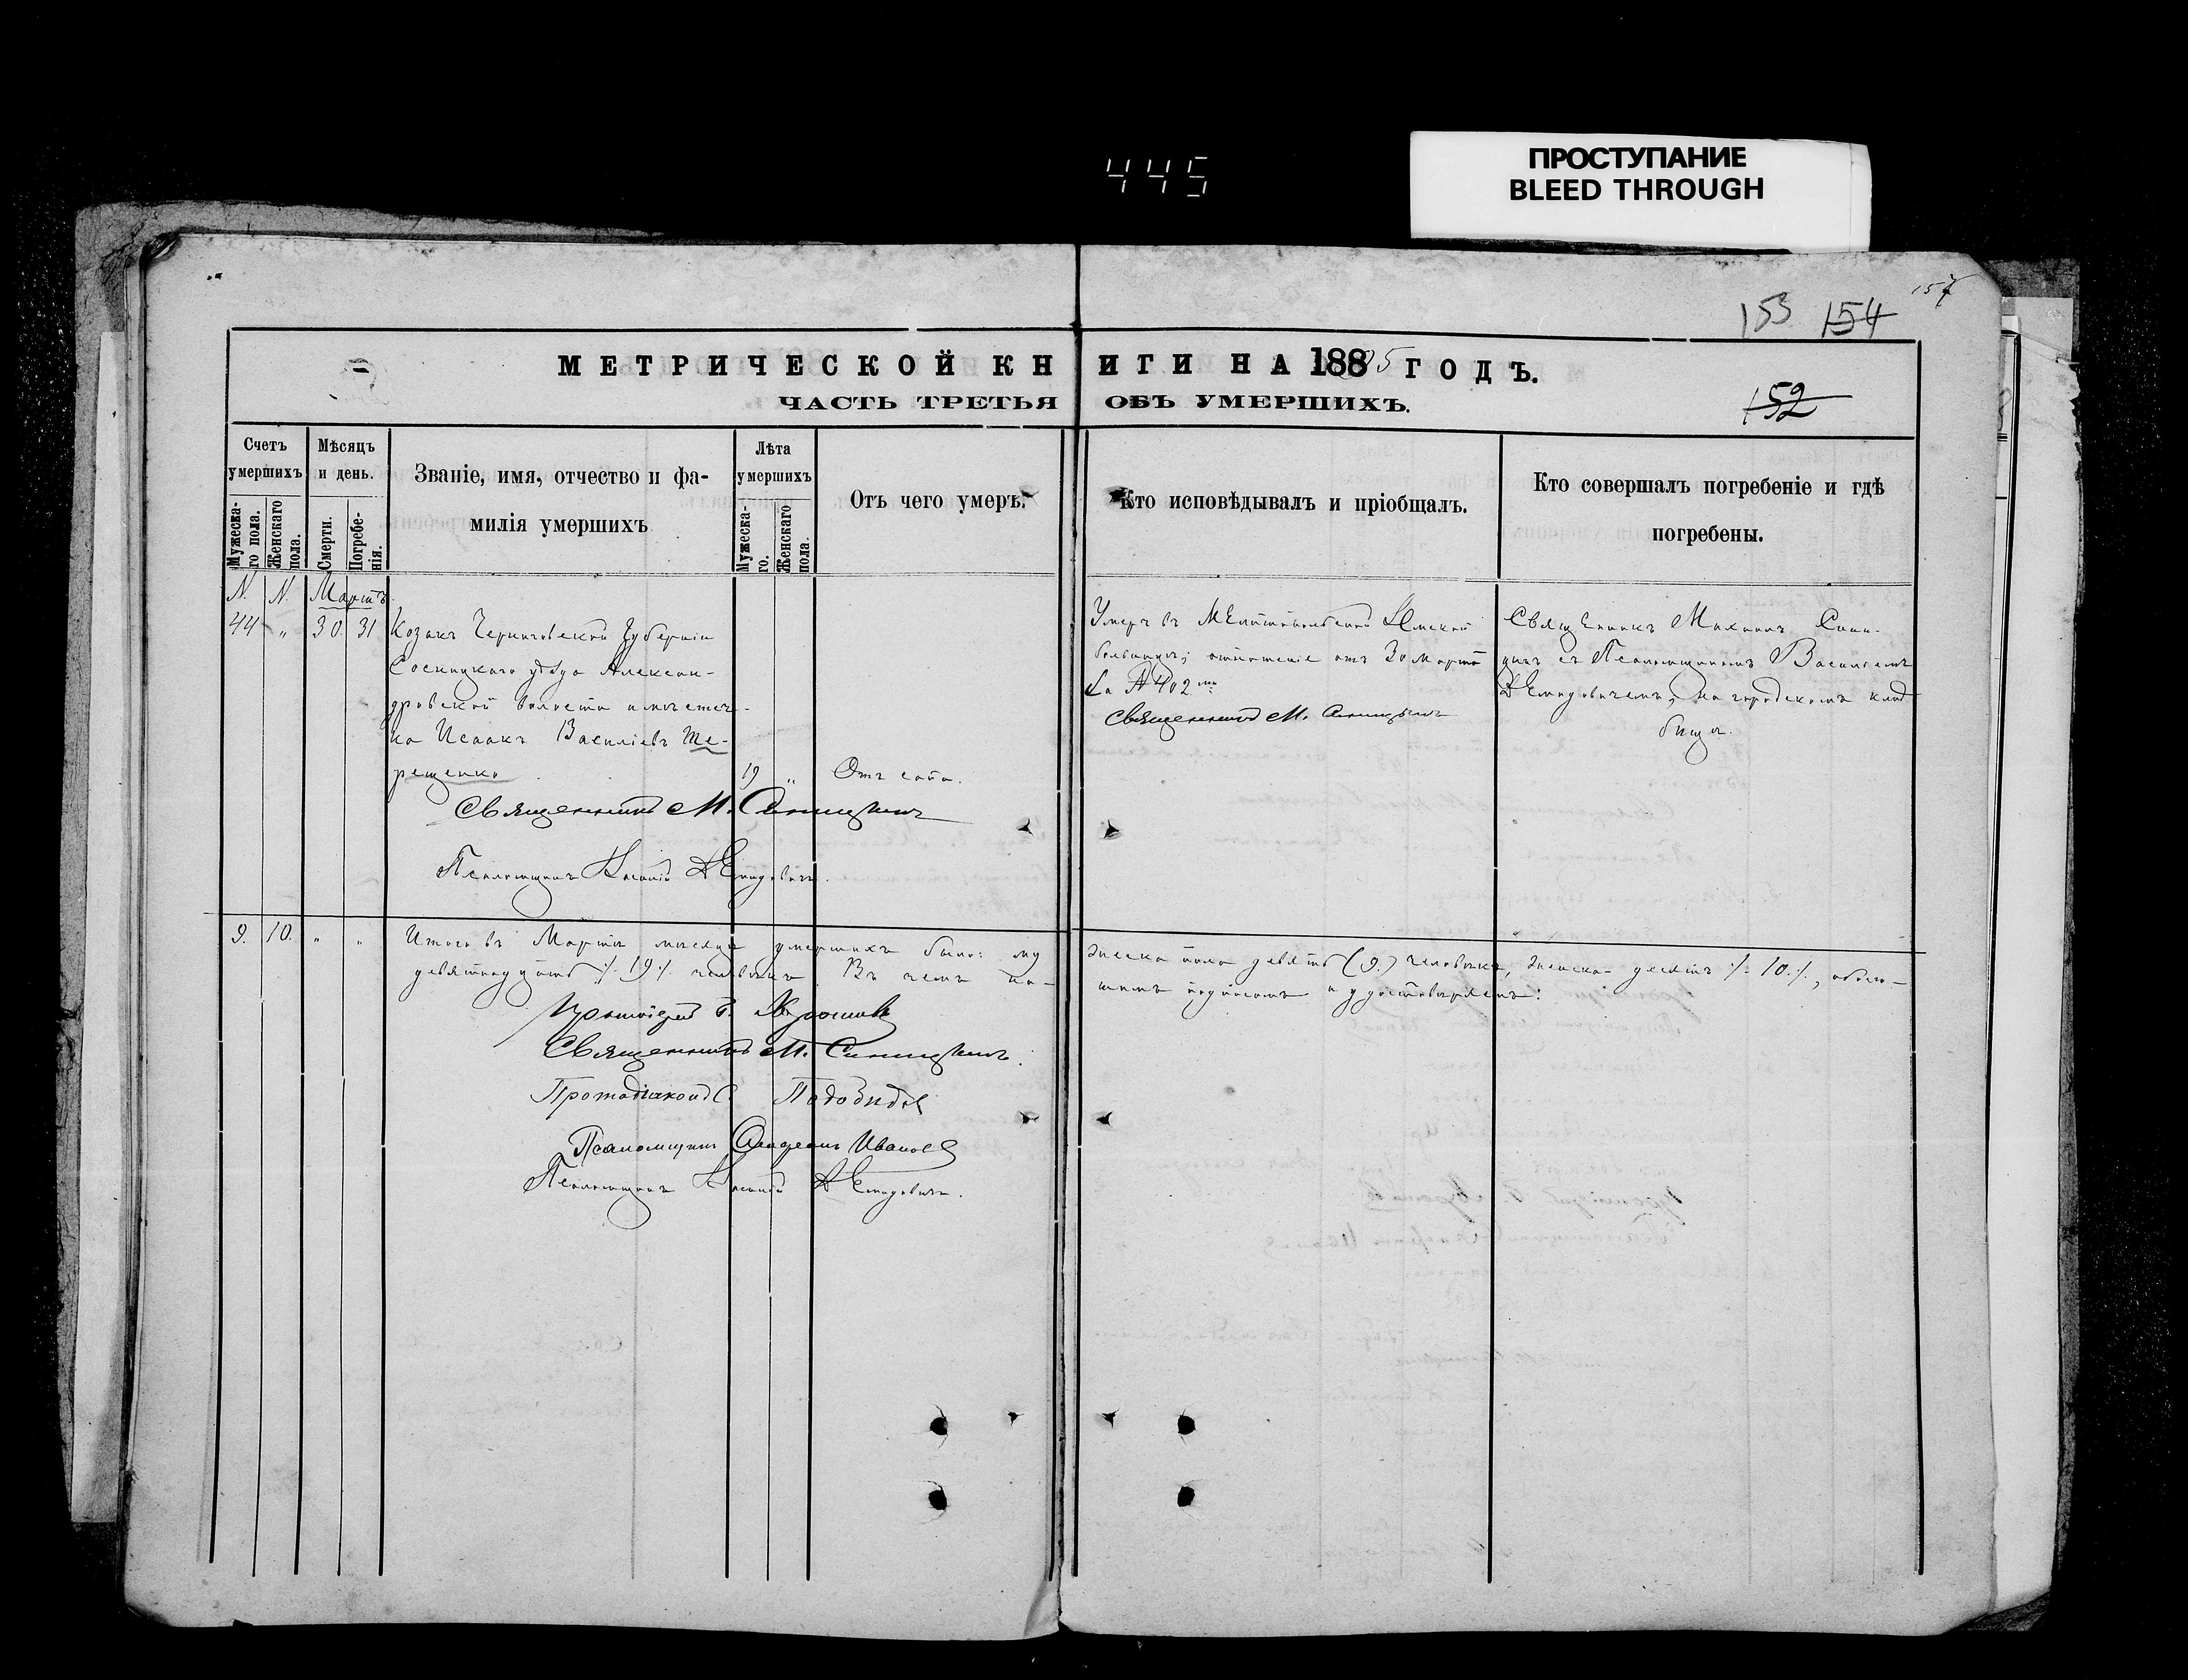 445
ПРОСТУПАНИЕ
BLEED THROUGH
157
153 154
МЕТРИЧЕСКОЙ КНИГИ НА 1885 ГОДЪ.
ЧАСТЬ ТРЕТЬЯ ОБЪ УМЕРШИХЪ.
152
Счетъ умершихъ
Мужеска-
го пола.
Женскаго
пола.
Мѣсяцъ и день.
Смерти.
Погребе-
нія.
Званіе, имя, отчество и фа-
милія умершихъ
Лѣта умершихъ
Мужеска-
го.
Женскаго
пола.
Отъ чего умеръ.
Кто исповѣдывалъ и пріобщалъ.
Кто совершалъ погребеніе и гдѣ
погребены.
N. N. Мартъ
44 " 30 31 Козакъ Черниговской Губерніи
Сосницкаго уѣзда Алексан-
дровской волости и мѣстеч-
ка Исаакъ Василіевъ Те-
рещенко 19 " Отъ сапа.
Священникъ М. Синицкій
Псаломщикъ Демидовичъ.
Умеръ въ Земской
больницѣ; отношеніе отъ 30 Марта
за № 402
Священникъ М. Синицкій
Священникъ Михаилъ Сини-
цкій съ Псаломщикомъ
Демидовичемъ, на городскомъ клад
бищѣ.
9. 10. " " Итого въ Мартѣ мѣсяцѣ умершихъ было: му
жеска пола девять (9.) человѣкъ, женска десять ·/. 10 ./., обоего
девятнадцать ·/. 19 ./. человѣкъ. Въ чемъ на-
шимъ подписомъ и удостовѣряемъ:
Протоіерей
Священникъ М. Синицкій.
Протодіаконъ С.
Псаломщикъ Ивановъ
Псаломщикъ Демидовичъ.